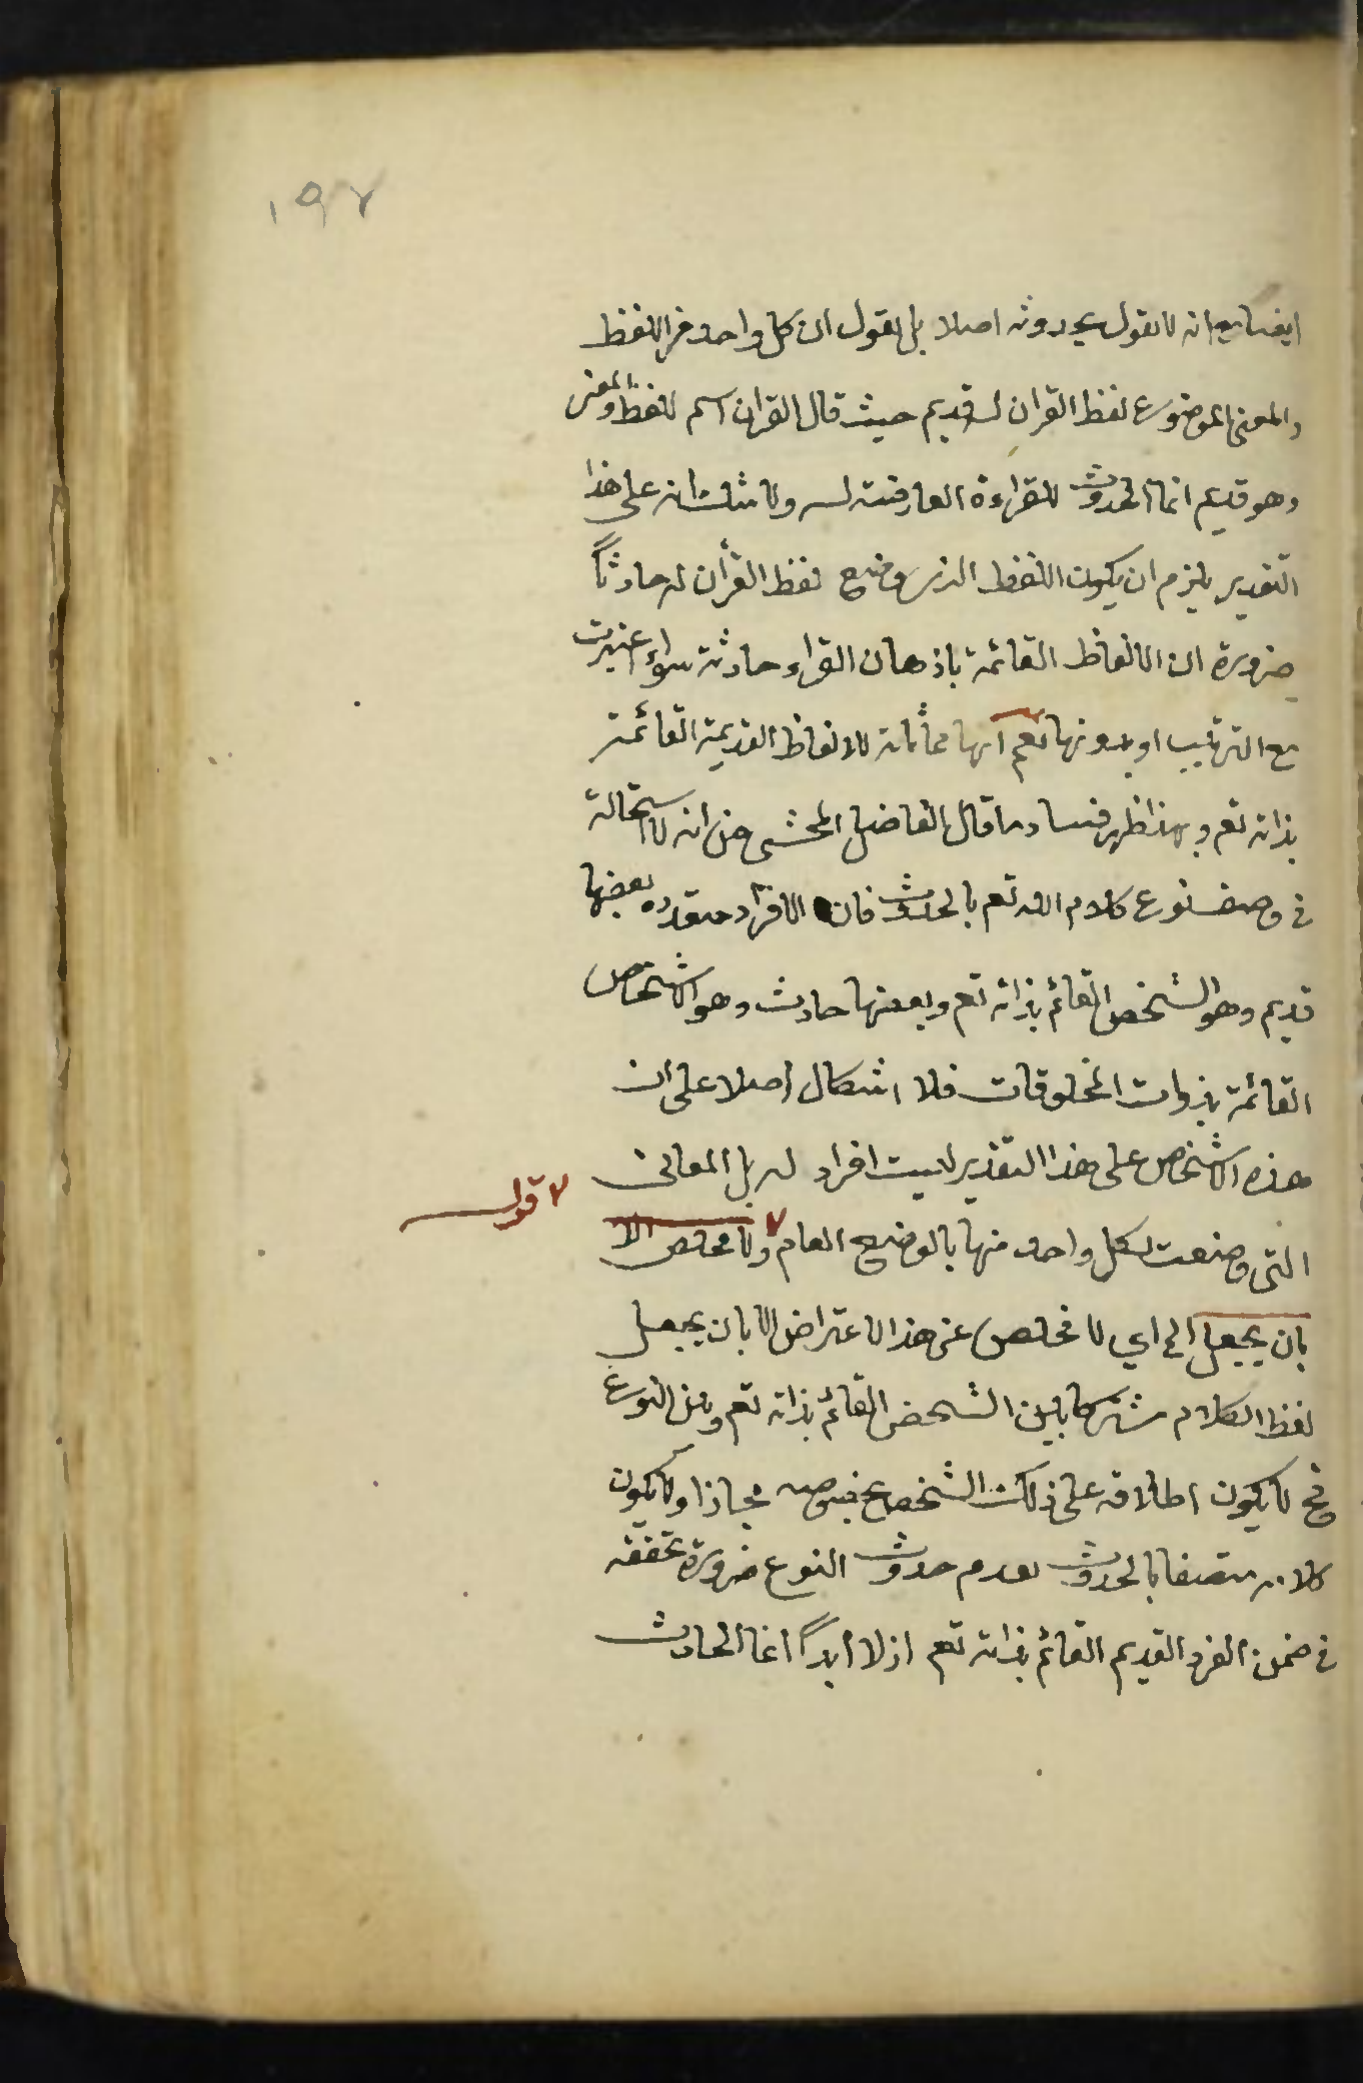 ١٩٧
ايضا مع انه لا يقول بحدوثه اصلا بل يقول ان كل واحد من اللفظ
والمعنى الموضوع لفظ القران له قديم حيث قال القران اسم للفظ والمعنى
وهو قديم انما الحدوث للقراءة العارضة له ولا شك انه على هذا
التقدير يلزم ان يكون اللفظ الذي وضع لفظ القرأن له حادثاً
ضرورة ان الالفاظ القائمة باذهان القراء حادثة سواء اعتبرت
مع الترتيب او بدونها نعم انها مماثلة للالفاظ القديمة القائمة
بذاته تعم وبهذا ظهر فساد ما قال الفاضل المحشي من انه لا استحالة
في وصف نوع كلام الله تعم بالحدوث فان الافراد متعددة بعضها
قديم وهو الشخص القائم بذاته تعم وبعضها حادث وهو الاشخاص
القائمة بذوات المخلوقات فلا اشكال اصلا على ان
هذه الاشخاص على هذا التقدير ليست افراد له بل المعاني
التي وضعت لكل واحد منها بالوضع العام ٧ ولا مخلص الا
٧ قوله
بان يجعل الخ اي لا مخلص عن هذا الاعتراض الا بان يجعل
لفظ الكلام مشتركا بين الشخص القائم بذاته تعم وبين النوع
فح لا يكون اطلاقه على ذلك الشخص بخصوصه مجازا ولا يكون
كلامه متصفا بالحدوث لعدم حدوث النوع ضرورة تحققه
في ضمن الفرد القديم القائم بذاته تعم ازلا ابداً انما الحادث